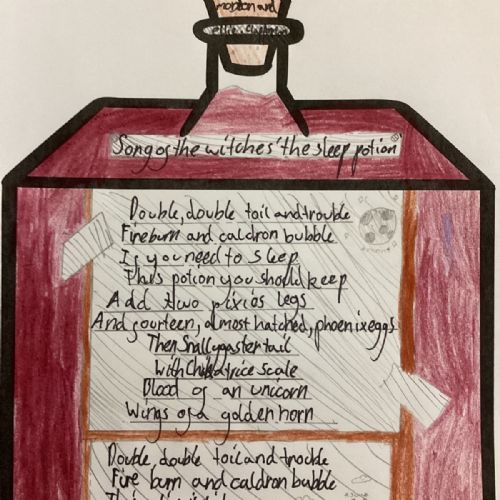 and
Song of the witches 'the sleep potion'
Double, double toil and trouble
Fire burn and caldron bubble
If you need to sleep
This potion you should keep
Add two pixies legs
And fourteen, almost hatched, phoenix eggs
Then Snallygaster tail
With Chickatrice scale
Blood of an unicorn
Wings of a golden horn
Double, double toil and trouble
Fire burn and caldron bubble